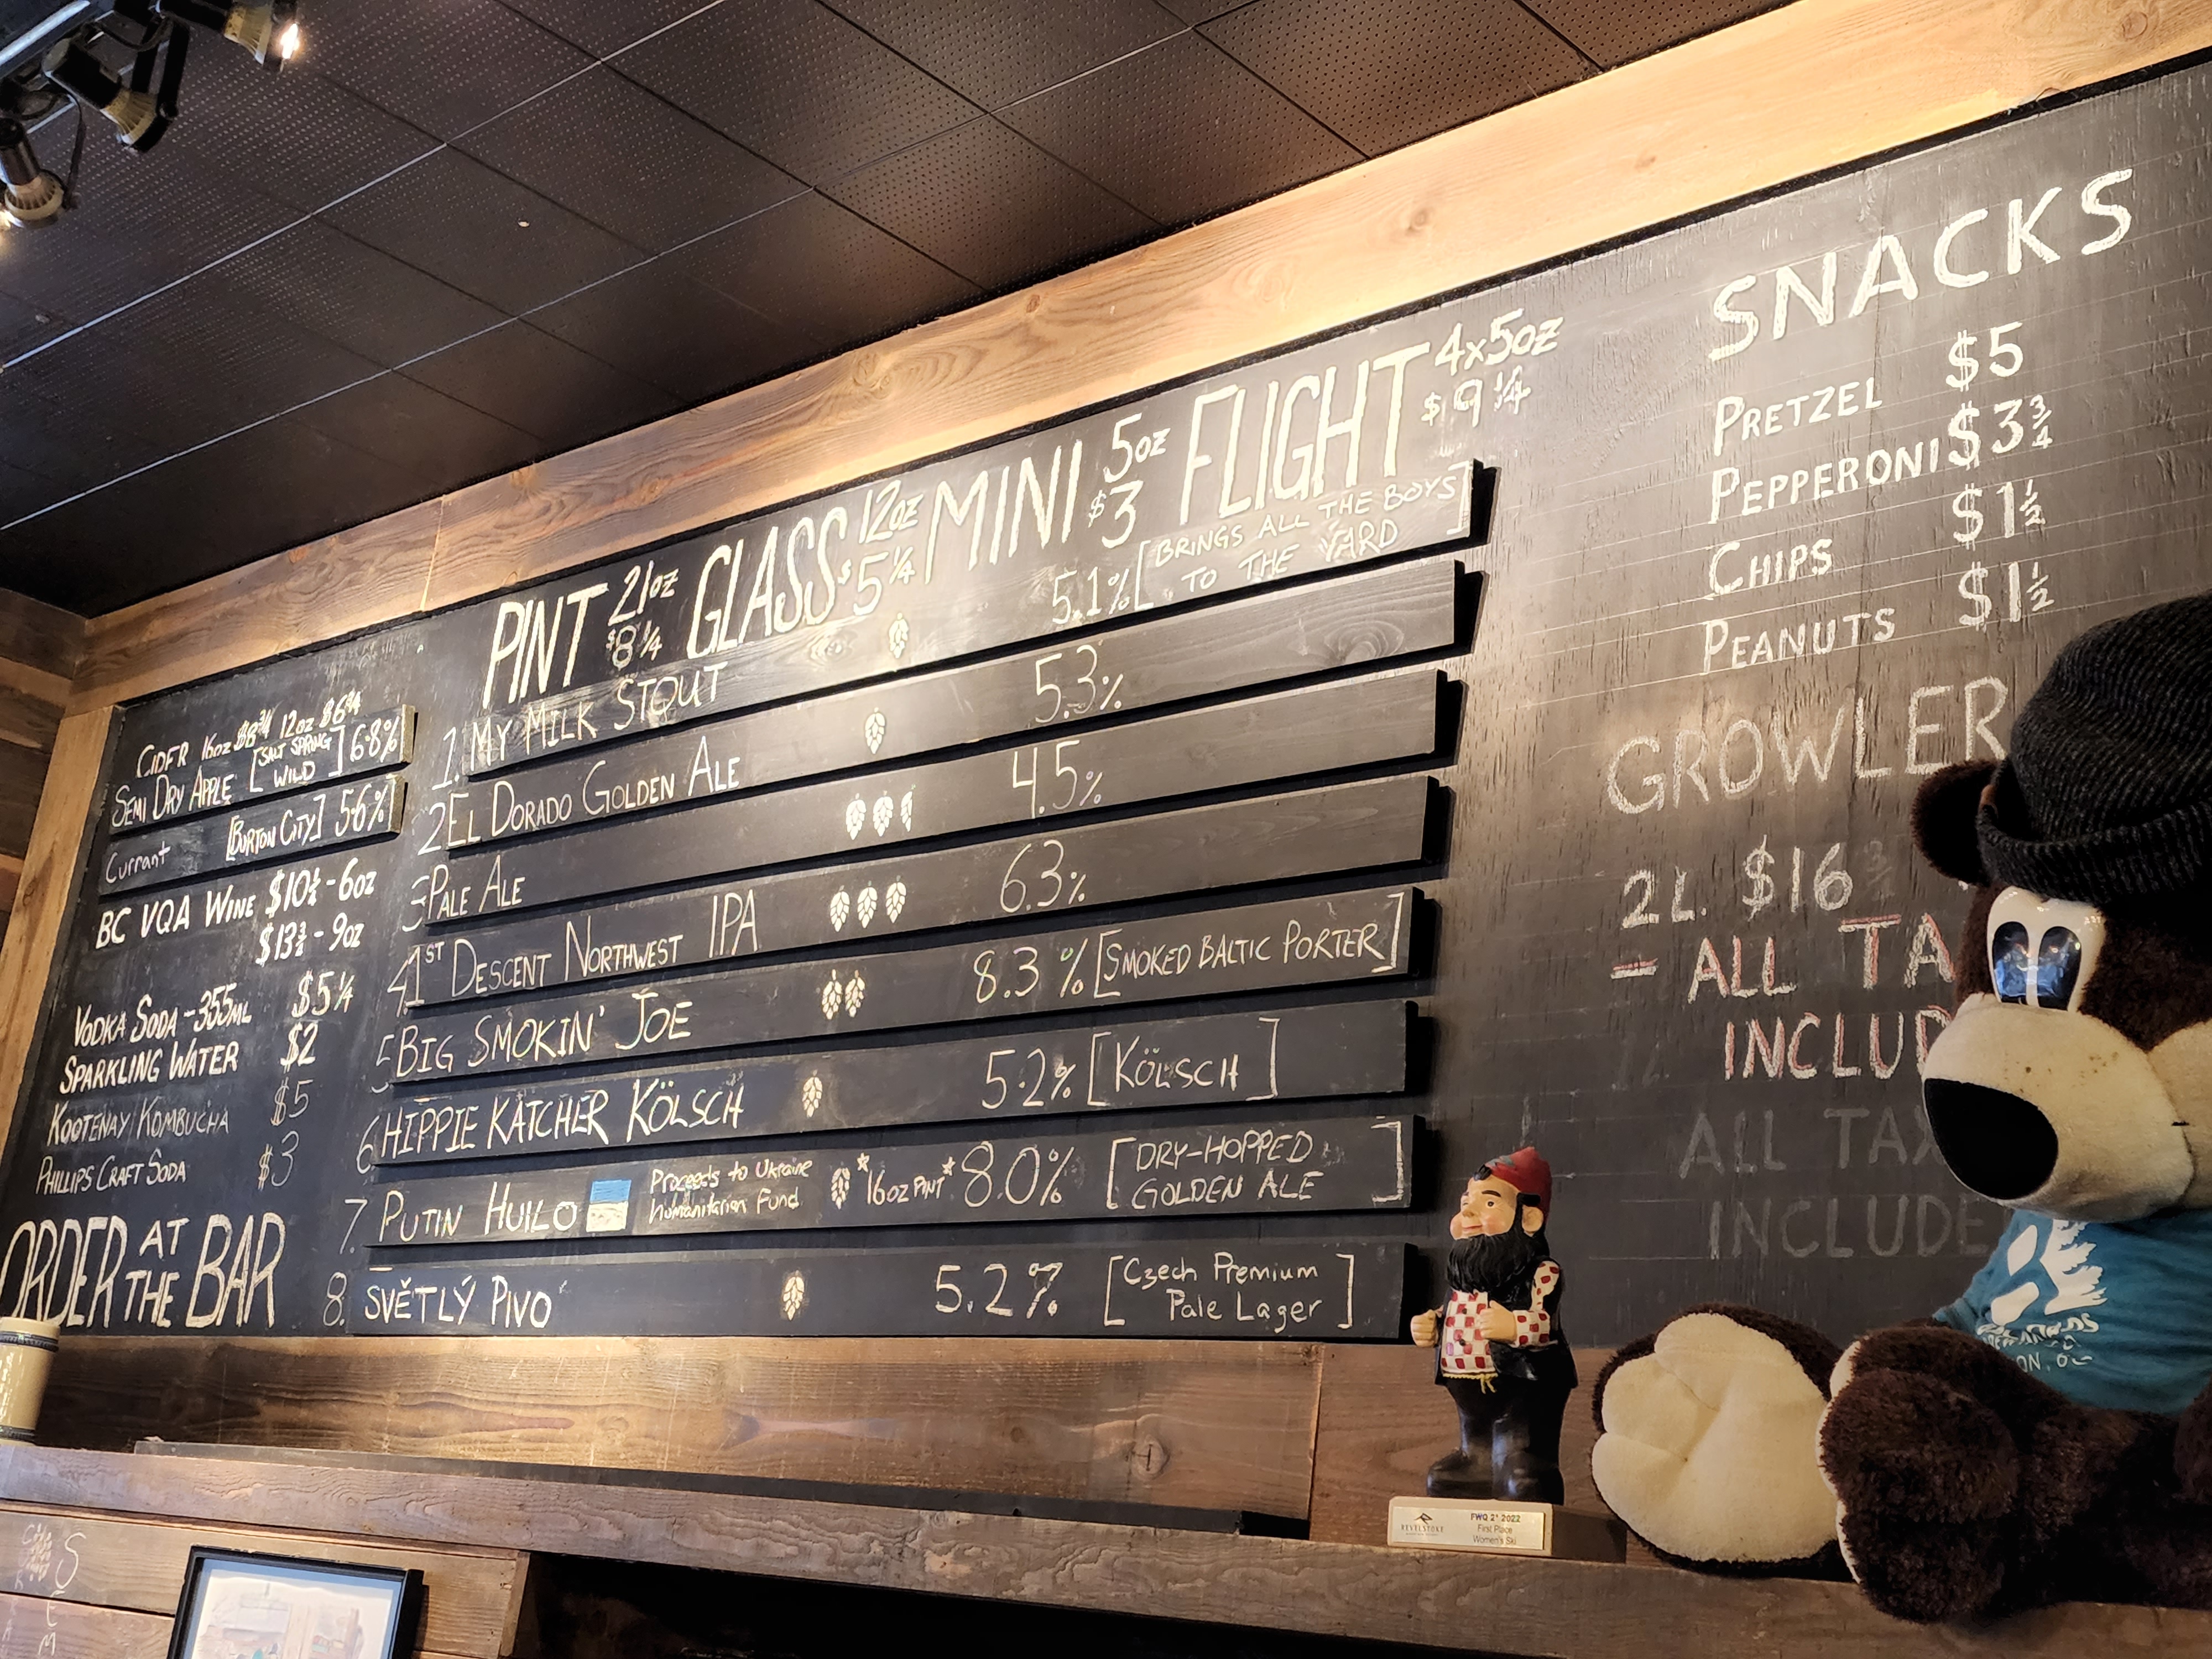 CIDER 16oz $8¾ 12oz $6¾
SEMI DRY APPLE [SALT SPRING WILD] 6.8%
Currant [BURTON CITY] 5.6%
BC VQA WINE $10½-6oz
$13¾-9oz
VODKA SODA-355ML $5¼
SPARKLING WATER $2
KOOTENAY KOMBUCHA $5
PHILLIPS CRAFT SODA $3
ORDER AT THE BAR
PINT 21oz $8¼ GLASS 12oz $5¼ MINI 5oz $3 FLIGHT 4x5oz $9¼
1. MY MILK STOUT 5.1% [BRINGS ALL THE BOYS TO THE YARD]
2 EL DORADO GOLDEN ALE 5.3%
3 PALE ALE 4.5%
4 1ST DESCENT NORTHWEST IPA 6.3%
5 BIG SMOKIN' JOE 8.3% [SMOKED BALTIC PORTER]
6 HIPPIE KATCHER KÖLSCH 5.2% [KÖLSCH]
7. PUTIN HUILO Proceeds to Ukraine Humanitarian Fund *16oz PINT* 8.0% [DRY-HOPPED GOLDEN ALE]
8. SVĚTLÝ PIVO 5.2% [Czech Premium Pale Lager]
SNACKS
PRETZEL $5
PEPPERONI $3¾
CHIPS $1½
PEANUTS $1½
GROWLER
2L. $16
- ALL TA
INCLUD
ALL TAX
INCLUDE
REVELSTOKE
FWQ 2* 2022
First Place
Women's Ski